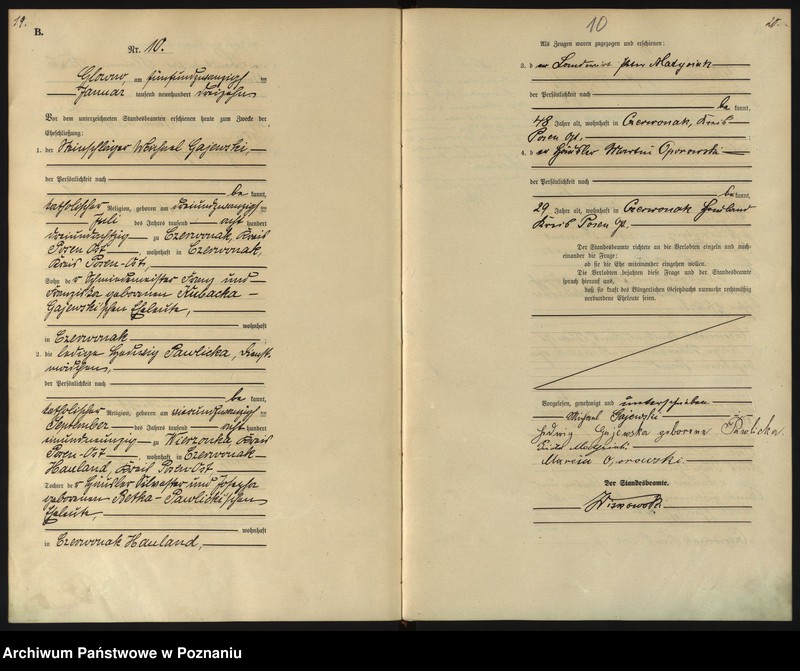 19.
B.
Nr. 10.
Glowno am fünfundzwanzigsten
Januar tausend neunhundert dreizehn
Vor dem unterzeichneten Standesbeamten erschienen heute zum Zwecke der
Eheschließung:
1. der Steinschläger Michael Gajewski,
der Persönlichkeit nach
be kannt,
katholischer Religion, geboren am dreiundzwanzigsten
Juli des Jahres tausend acht hundert
dreiundachtzig zu Czerwonak, Kreis
Posen Ost, wohnhaft in Czerwonak,
Kreis Posen-Ost,
Sohn der Schmiedemeister Franz und
Franziska geborenen Kubacka-
Gajewski'schen Eheleute,
wohnhaft
in Czerwonak
2. die ledige Hedwig Pawlicka, Dienst-
mädchen,
der Persönlichkeit nach
be kannt,
katholischer Religion, geboren am vierundzwanzigsten
September des Jahres tausend acht hundert
einundneunzig zu Wierzonka, Kreis
Posen-Ost, wohnhaft in Czerwonak-
Hauland, Kreis Posen-Ost
Tochter der Häusler Silvester und Josepha
geborenen Retka-Pawlicki'schen
Eheleute,
wohnhaft
in Czerwonak Hauland,
10
20.
Als Zeugen waren zugezogen und erschienen:
3. der Landwirt Peter Matysiak
der Persönlichkeit nach
be kannt,
48 Jahre alt, wohnhaft in Czerwonak, Kreis
Posen Ost.
4. der Häusler Martin
der Persönlichkeit nach
be kannt,
29 Jahre alt, wohnhaft in Czerwonak Hauland
Kreis Posen Ost.
Der Standesbeamte richtete an die Verlobten einzeln und nach-
einander die Frage:
ob sie die Ehe miteinander eingehen wollen.
Die Verlobten bejahten diese Frage und der Standesbeamte
sprach hierauf aus,
daß sie kraft des Bürgerlichen Gesetzbuchs nunmehr rechtmäßig
verbundene Eheleute seien.
Vorgelesen, genehmigt und unterschrieben
Michael Gajewski
Hedwig Gajewska geborene Pawlicka.
Der Standesbeamte.
Archiwum Państwowe w Poznaniu